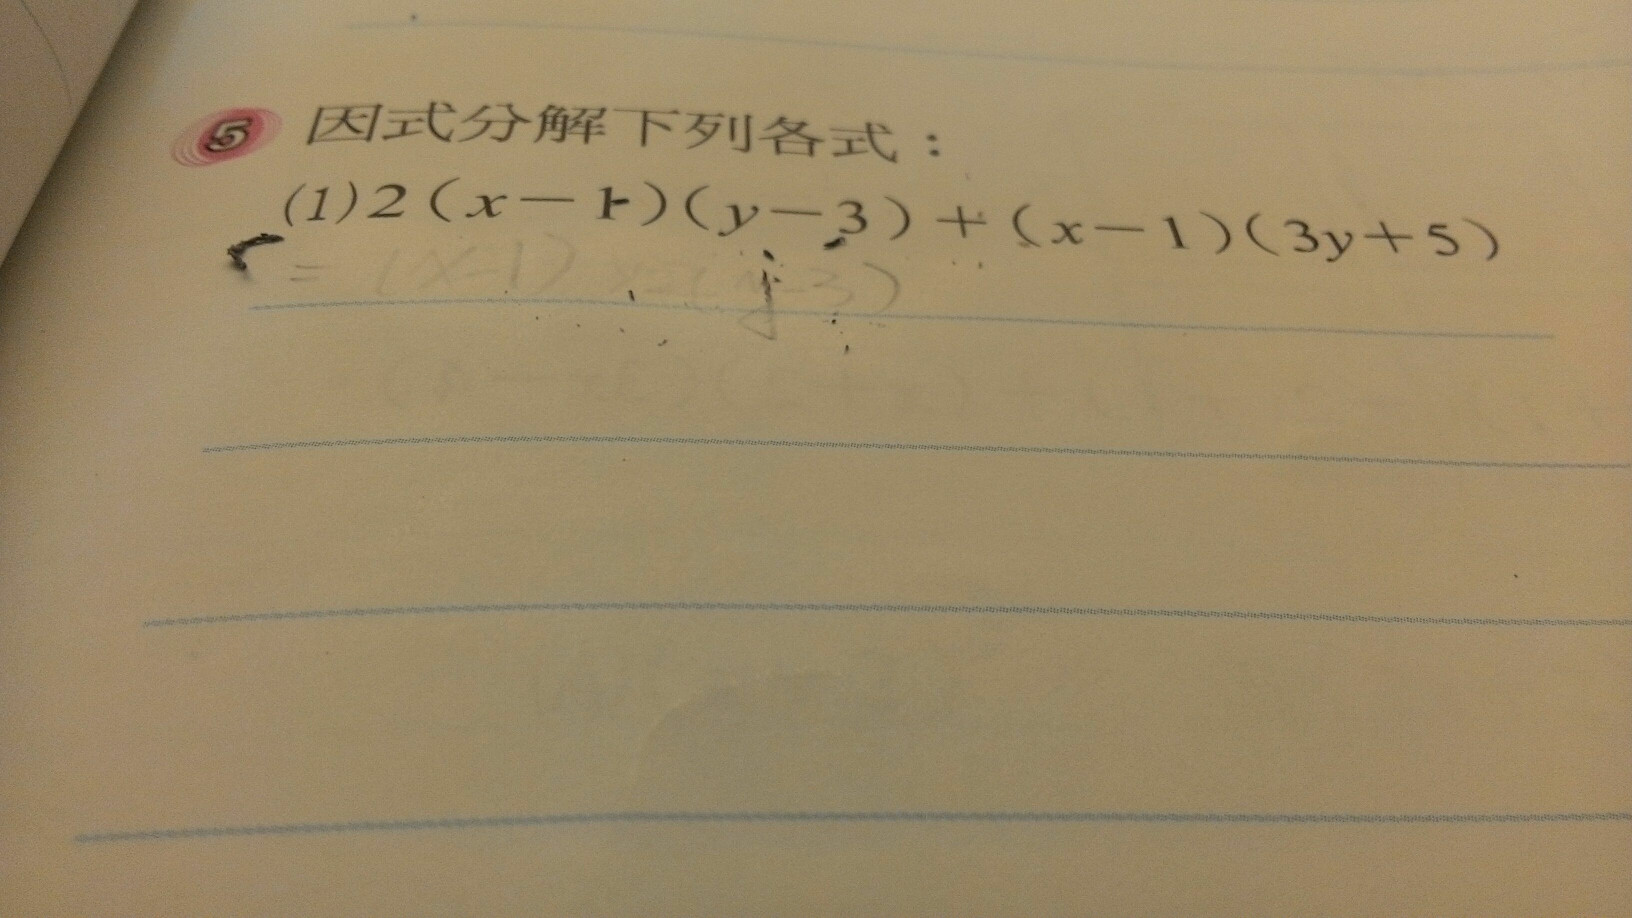 5 因式分解下列各式：
(1)2(x－1)(y－3)＋(x－1)(3y＋5)
= (x-1) (y-3)